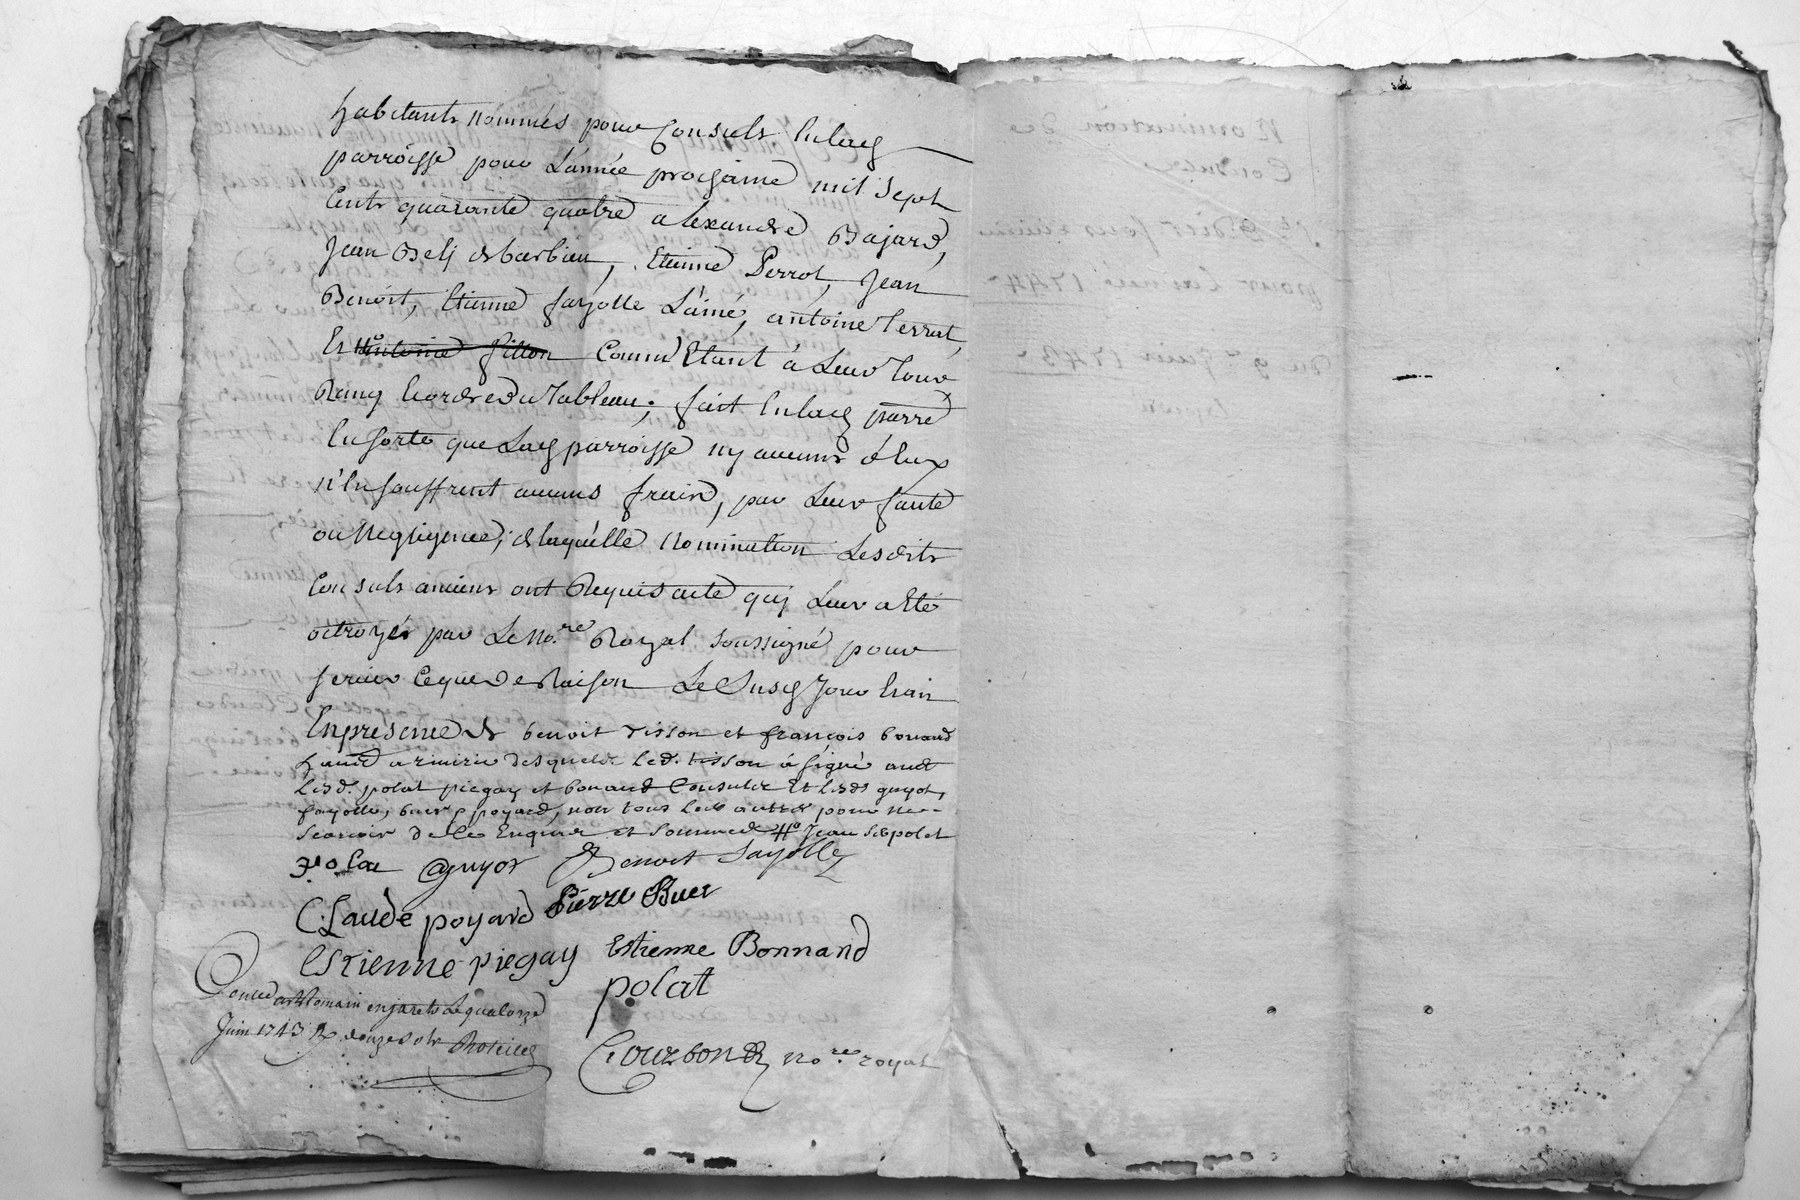 habitants nommés pour Consuls En lad
parroisse pour L'année prochaine mil Sept
Cents quarante quatre alexandre Bajard,
Jean Beli de barbieu, Etienne Perrot, Jean
Benoit, Etienne fayolle L'ainé, antoine Terrat,
Et Antoine fillon Comm' Etant à Leur Tour
Rang Et ordre du Tableau; fait En lad parre
En sorte que Lad parroisse ny aucuns d'Eux
n'En souffrent aucuns frais, par Leur faute
ou Negligence, de laquélle Nomination Lesdits
Consuls anciens ont Requis acte quy Leur a Eté
octroyér par Le No.re Royal soussigné pour
servir Ce que de Raison Le Susd Jour Et an
En presence de benoit tisson et françois bonand
desquels led. tisson à signé avec
Lesd. polat piegay et bonand Consuls Et lesd guyot,
fayolle, buer, poyard, non tous les autres pour ne
scavoir de ce Enquis et sommés Jean
guyot Benoit fayolle
Claude poyard Pierre Buer
Estienne piegay Estienne Bonnand
polat
Controllé a St Romain en jarets Le quatorze
Juin 1743 R douze sols
Gourbon no.re royal
Nomination des
Consuls
St Didier sous riverie
pour L'année 1744
du 9e Juin 1743